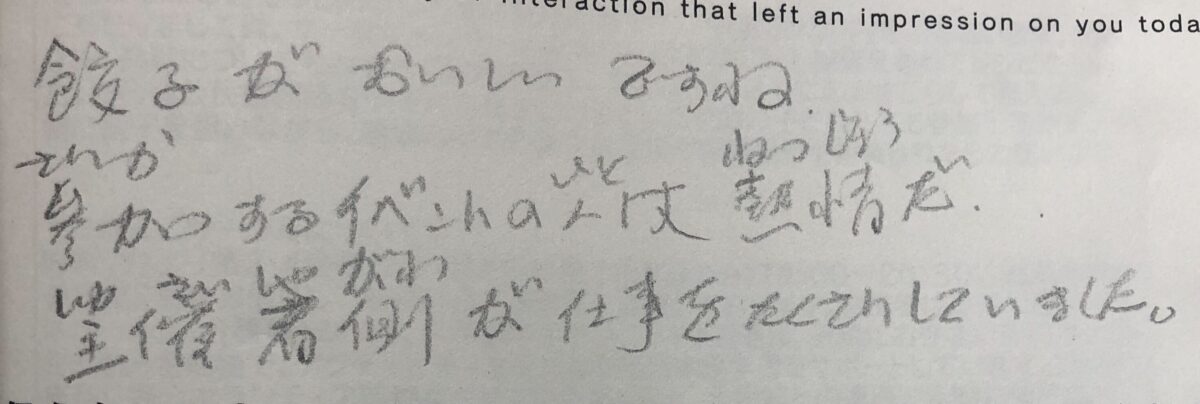 interaction that left an impression on you toda
餃子がおいしいですね.
さんか
ひと
ねつじょう
参加するイベントの人は熱情だ.
しゅ さい しゃ がわ
主催者側が仕事をたくさんしていました。